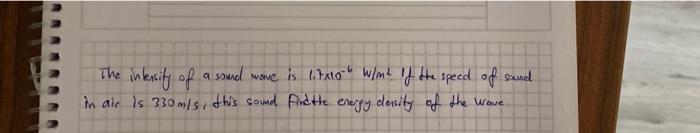 The intensity of a sound wave is 1.7x10⁻⁶ W/m². If the speed of sound
in air is 330 m/s, this sound Find the energy density of the wave